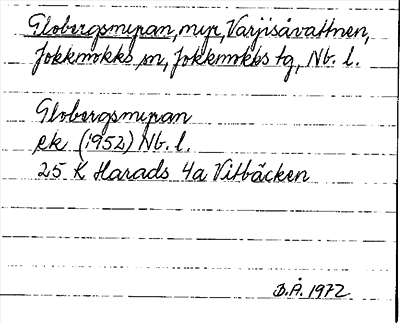 Globergsmyran, myr, Varjisåvattnen,
Jokkmokks sn, Jokkmokks tg, Nb. l.
Globergsmyran
ek (1952) Nb. l.
25 K Harads 4a Vitbäcken
B.Å. 1972